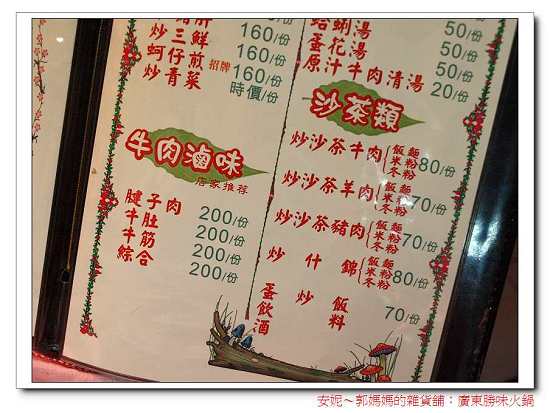 160/份
炒三鮮 160/份
蚵仔煎 招牌 160/份
炒青菜 時價/份
牛肉滷味
店家推荐
腱子肉 200/份
牛肚 200/份
牛筋 200/份
綜合 200/份
50/份
蛤蜊湯 50/份
蛋花湯 50/份
原汁牛肉清湯 20/份
沙茶類
炒沙茶牛肉 飯麵 米粉 冬粉 80/份
炒沙茶羊肉 飯麵 米粉 冬粉 70/份
炒沙茶豬肉 飯麵 米粉 冬粉 70/份
炒什錦 飯麵 米粉 冬粉 80/份
蛋炒飯 70/份
飲料
酒
安妮~郭媽媽的雜貨舖：廣東勝味火鍋